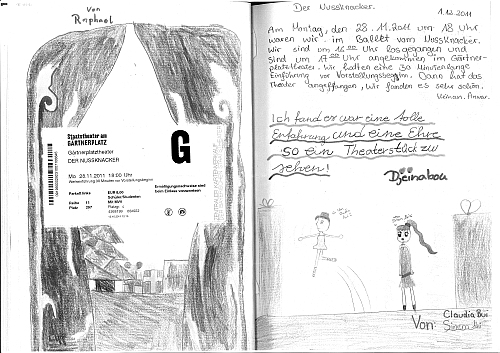 Von
Raphael
Staatstheater am
GÄRTNERPLATZ
Gärtnerplatztheater
DER NUSSKNACKER
Mo 28.11.2011 18:00 Uhr
G
Parkett links
EUR 8,00
Schüler/Studenten
Reihe 11
Platz 297
Ermäßigungsnachweise sind
beim Einlass vorzuweisen
Der Nussknacker.
1.12.2011
Am Montag, den 28.11.2011 um 18 Uhr
waren wir im Ballet vom Nussknacker.
Wir sind um 16:00 Uhr losgegangen und
Sind um 17:00 Uhr angekommen im Gärtner-
platztheater. Wir hatten eine 30 Minutenlange
Einführung vor Vorstellungsbeginn. Dann hat das
Theater angefangen, wir fanden es sehr schön.
Kenan. Anwar.
Ich fand er war eine tolle
Erfahrung und eine Ehre
so ein Theaterstück zu
sehen!
Djeinabou
Von:
Claudia Bùi
Sinem